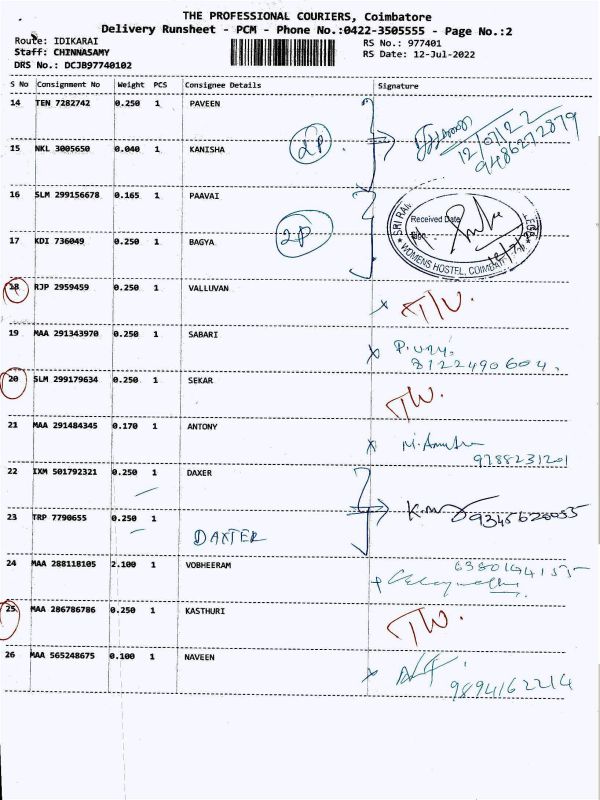 THE PROFESSIONAL COURIERS, Coimbatore
Delivery Runsheet - PCM - Phone No.:0422-3505555 - Page No.:2
Route: IDIKARAI
RS No.: 977401
Staff: CHINNASAMY
RS Date: 12-Jul-2022
DRS No.: DCJB97740102
S No Consignment No Weight PCS Consignee Details Signature
14 TEN 7282742 0.250 1 PAVEEN
12/07/22
9486272879
15 NKL 3005650 0.040 1 KANISHA 2P
16 SLM 299156678 0.165 1 PAAVAI
SRI Received Date
WOMENS HOSTEL, COIMBAT
17 KDI 736049 0.250 1 BAGYA 2P
18 RJP 2959459 0.250 1 VALLUVAN
19 MAA 291343970 0.250 1 SABARI
8122490604.
20 SLM 299179634 0.250 1 SEKAR
21 MAA 291484345 0.170 1 ANTONY
9788231201
22 IXM 501792321 0.250 1 DAXER
23 TRP 7790655 0.250 1
DAXTER
24 MAA 288118105 2.100 1 VOBHEERAM
25 MAA 286786786 0.250 1 KASTHURI
26 MAA 565248675 0.100 1 NAVEEN
9894162214